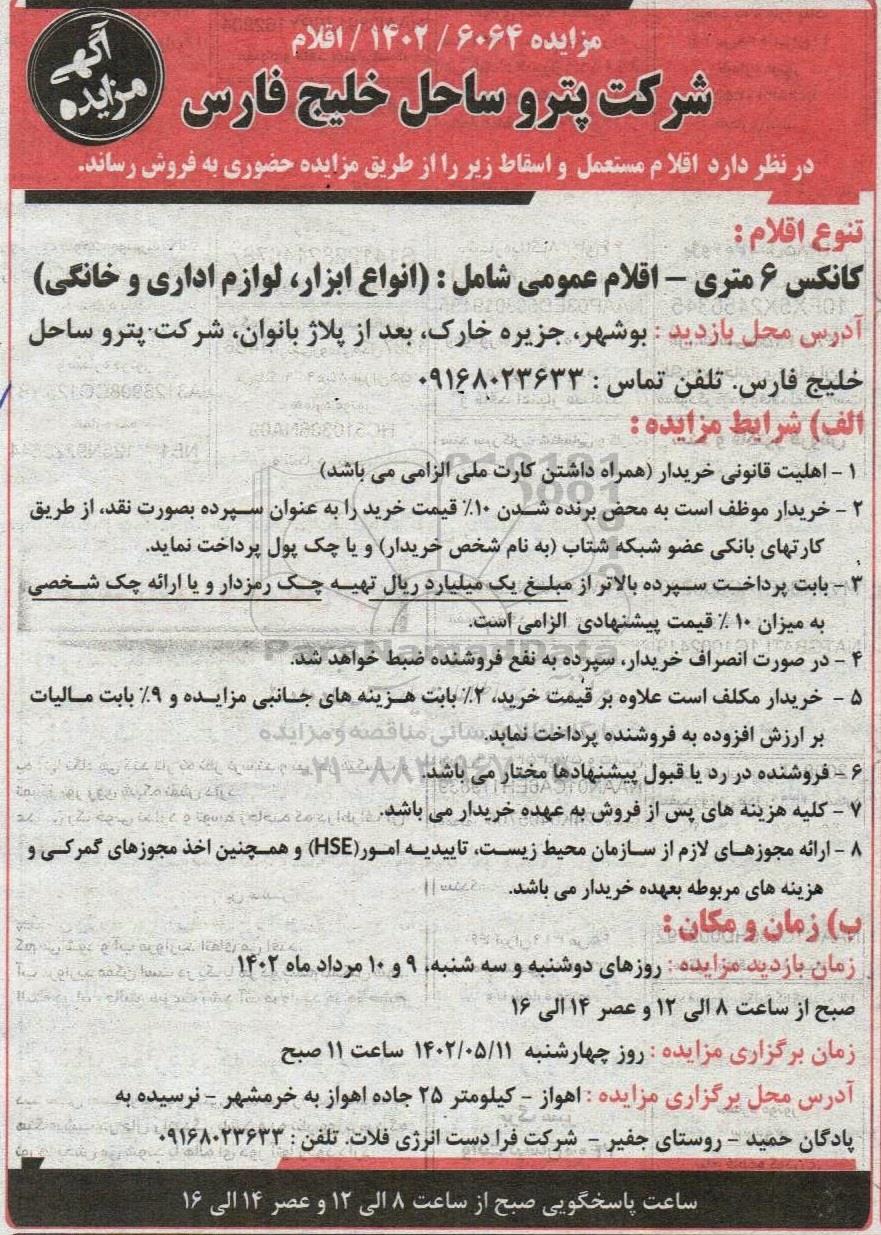 مزایده ۶۰۶۴ / ۱۴۰۲ / اقلام
آگهی
مزایده
شرکت پترو ساحل خلیج فارس
در نظر دارد اقلام مستعمل و اسقاط زیر را از طریق مزایده حضوری به فروش رساند.
تنوع اقلام :
کانکس ۶ متری – اقلام عمومی شامل : (انواع ابزار، لوازم اداری و خانگی)
آدرس محل بازدید : بوشهر، جزیره خارک، بعد از پلاژ بانوان، شرکت پترو ساحل
خلیج فارس. تلفن تماس : ۰۹۱۶۸۰۲۳۶۳۳
الف) شرایط مزایده :
۱ - اهلیت قانونی خریدار (همراه داشتن کارت ملی الزامی می باشد)
۲ - خریدار موظف است به محض برنده شدن ۱۰٪ قیمت خرید را به عنوان سپرده بصورت نقد، از طریق
کارتهای بانکی عضو شبکه شتاب (به نام شخص خریدار) و یا چک پول پرداخت نماید.
۳ - بابت پرداخت سپرده بالاتر از مبلغ یک میلیارد ریال تهیه چک رمزدار و یا ارائه چک شخصی
به میزان ۱۰ ٪ قیمت پیشنهادی الزامی است.
۴ - در صورت انصراف خریدار، سپرده به نفع فروشنده ضبط خواهد شد.
۵ - خریدار مکلف است علاوه بر قیمت خرید، ۲٪ بابت هزینه های جانبی مزایده و ۹٪ بابت مالیات
بر ارزش افزوده به فروشنده پرداخت نماید.
۶ - فروشنده در رد یا قبول پیشنهادها مختار می باشد.
۷ - کلیه هزینه های پس از فروش به عهده خریدار می باشد.
۸ - ارائه مجوزهای لازم از سازمان محیط زیست، تاییدیه امور(HSE) و همچنین اخذ مجوزهای گمرکی و
هزینه های مربوطه بعهده خریدار می باشد.
ب) زمان و مکان :
زمان بازدید مزایده : روزهای دوشنبه و سه شنبه، ۹ و ۱۰ مرداد ماه ۱۴۰۲
صبح از ساعت ۸ الی ۱۲ و عصر ۱۴ الی ۱۶
زمان برگزاری مزایده : روز چهارشنبه ۱۴۰۲/۰۵/۱۱ ساعت ۱۱ صبح
آدرس محل برگزاری مزایده : اهواز - کیلومتر ۲۵ جاده اهواز به خرمشهر - نرسیده به
پادگان حمید - روستای جفیر - شرکت فرا دست انرژی فلات. تلفن : ۰۹۱۶۸۰۲۳۶۳۳
ساعت پاسخگویی صبح از ساعت ۸ الی ۱۲ و عصر ۱۴ الی ۱۶
ParsNamadData